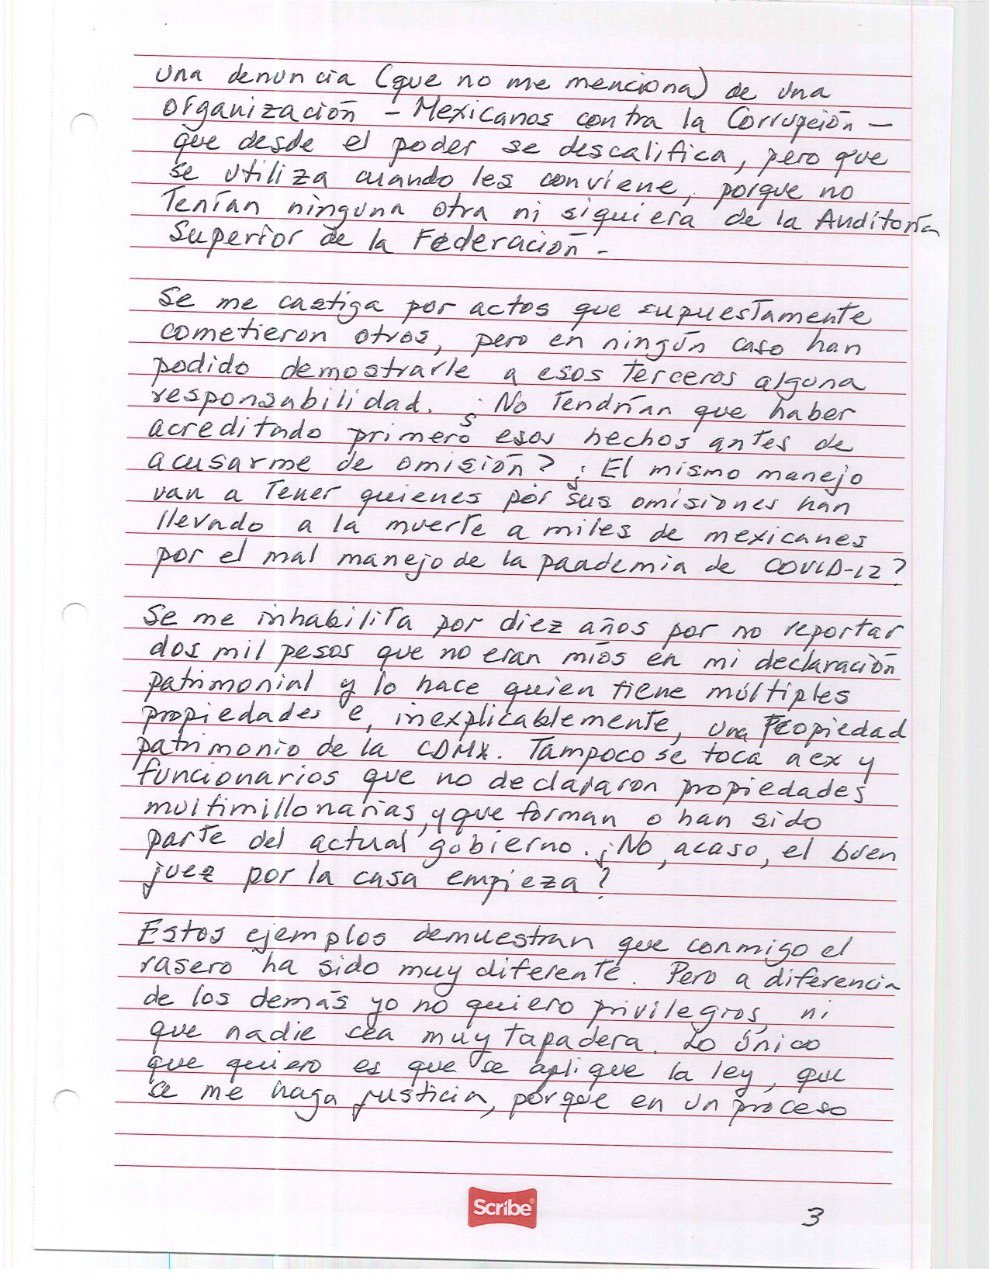 una denuncia (que no me menciona) de una
organización - Mexicanos contra la Corrupción -
que desde el poder se descalifica, pero que
se utiliza cuando les conviene, porque no
Tenían ninguna otra ni siquiera de la Auditoría
Superior de la Federación -
Se me castiga por actos que supuestamente
cometieron otros, pero en ningún caso han
podido demostrarle a esos terceros alguna
responsabilidad. ¿No Tendrían que haber
acreditado primero esos hechos antes de
acusarme de omisión? ¿El mismo manejo
van a Tener quienes por sus omisiones han
llevado a la muerte a miles de mexicanes
por el mal manejo de la paademia de COVID-12?
Se me inhabilita por diez años por no reportar
dos mil pesos que no eran míos en mi declaración
patrimonial y lo hace quien tiene múltiples
propiedades e, inexplicablemente, una Propiedad
patrimonio de la CDMX. Tampoco se toca a ex y
funcionarios que no declararon propiedades
multimillonarias, y que forman o han sido
parte del actual gobierno. ¿No, acaso, el buen
juez por la casa empieza?
Estos ejemplos demuestran que conmigo el
rasero ha sido muy diferente. Pero a diferencia
de los demás yo no quiero privilegios, ni
que nadie sea muy tapadera. Lo único
que quiero es que se aplique la ley, que
se me haga justicia, porque en un proceso
Scribe®
3